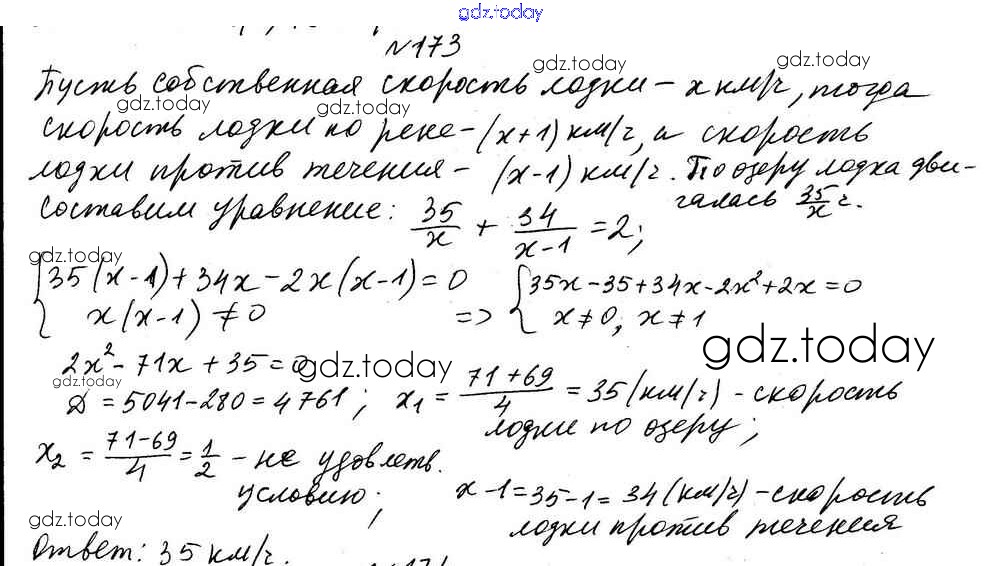 gdz.today
№173
gdz.today
Пусть собственная скорость лодки – x км/ч, тогда
gdz.today gdz.today gdz.today
скорость лодки по реке – (x+1) км/ч, а скорость
лодки против течения – (x-1) км/ч. По озеру лодка дви-
галась 35/x ч.
Составим уравнение: 35/x + 34/(x-1) = 2;
gdz.today
{ 35(x-1)+34x-2x(x-1)=0
x(x-1)≠0
=> { 35x-35+34x-2x²+2x=0
x≠0, x≠1
2x²-71x+35=0
gdz.today gdz.today
gdz.today
D=5041-280=4761; x₁ = (71+69)/4 = 35(км/ч) - скорость
лодки по озеру;
x₂ = (71-69)/4 = 1/2 – не удовлетв.
условию;
x-1=35-1=34(км/ч)-скорость
лодки против течения
gdz.today gdz.today
Ответ: 35 км/ч.